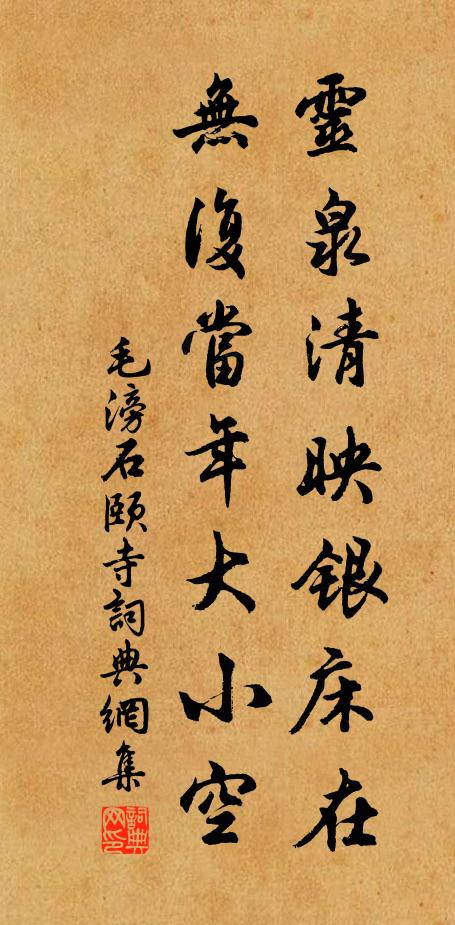 靈泉清映銀床在
無復當年大小空
毛滂石頤寺詞典網集
詞典网印